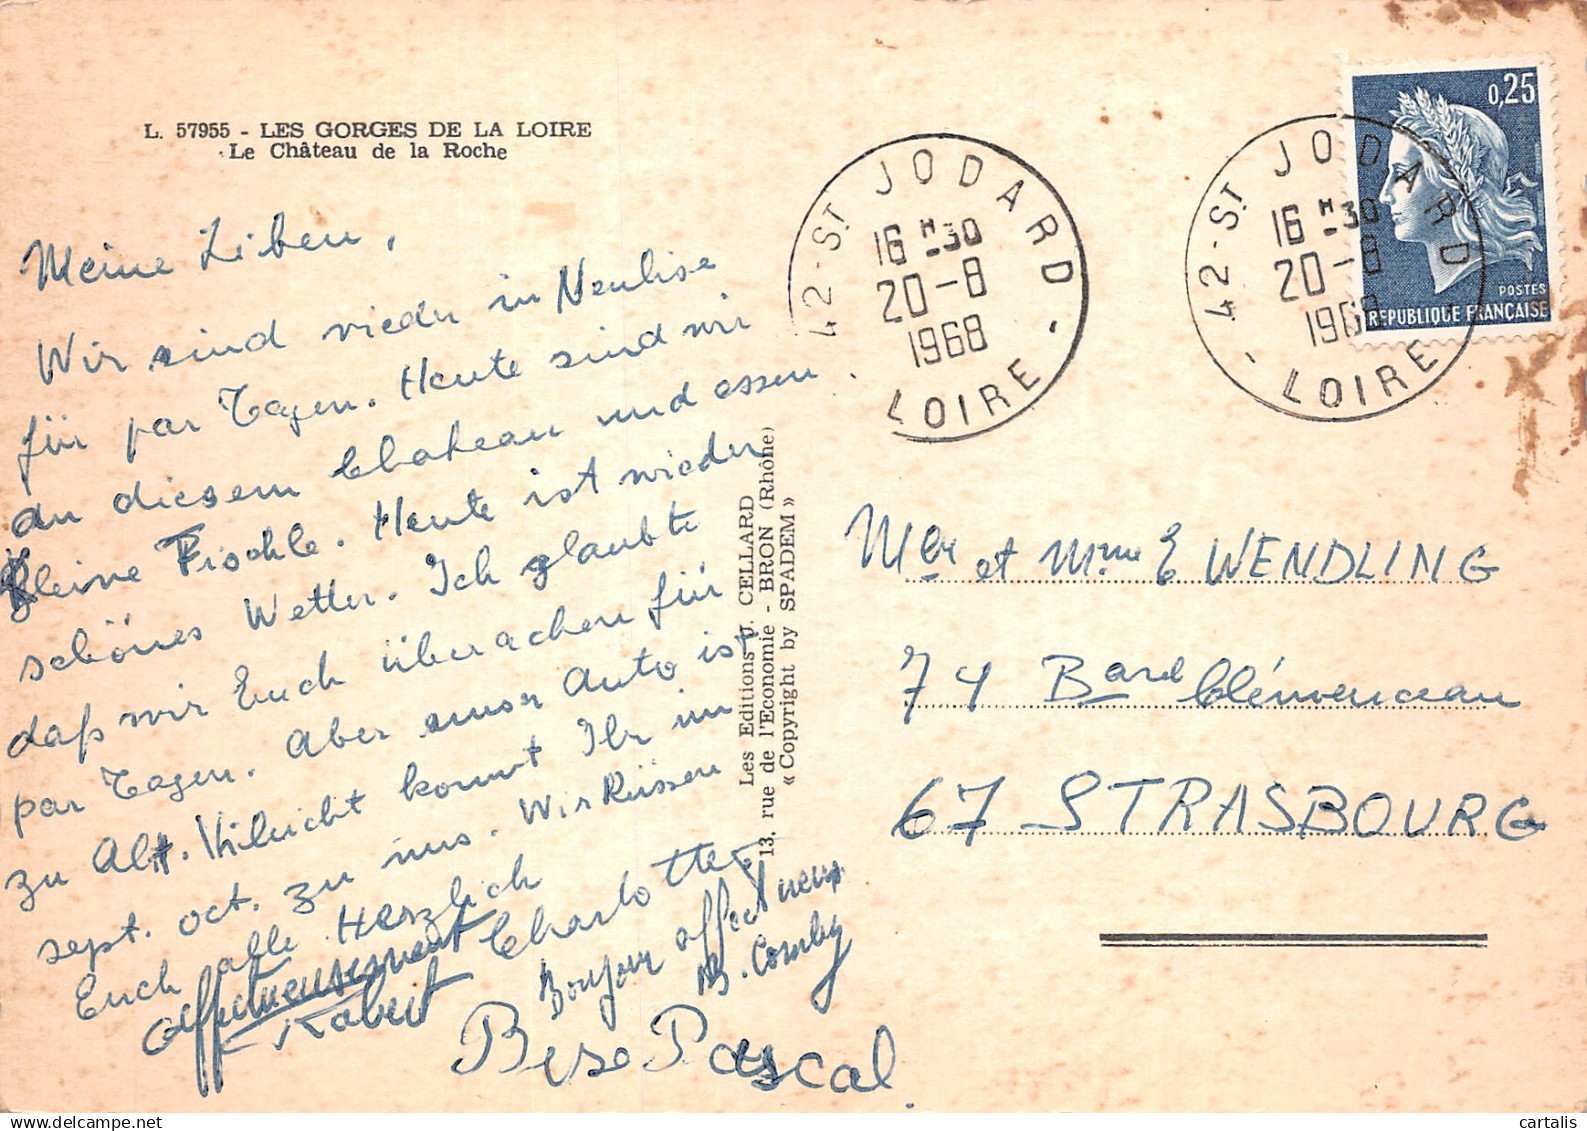 L. 57955 - LES GORGES DE LA LOIRE
Le Château de la Roche
Meine Lieben,
Wir sind wieder in Neulise
für par Tagen. Heute sind wir
an diesem Chateau und essen
kleine Fischle. Heute ist wieder
schönes Wetter. Ich glaubte
daß wir Euch überachen für
par Tagen. Aber unser Auto ist
zu Alt. Vileicht kommt Ihr im
sept. oct. zu uns. Wir Küssen
Euch alle Herzlich
Charlotte
affectueusement
Robert
Bonjour affectueux
M. Comby
Bise Pascal
Les Editions J. CELLARD
13, rue de l'Economie - BRON (Rhône)
« Copyright by SPADEM »
42 - St JODARD - LOIRE
16 H 30
20-8
1968
42 - St JODARD - LOIRE
16 H 30
20-8
1968
0,25
POSTES
REPUBLIQUE FRANÇAISE
Mr et Mme E WENDLING
74 Bard Clémenceau
67 STRASBOURG
cartalis